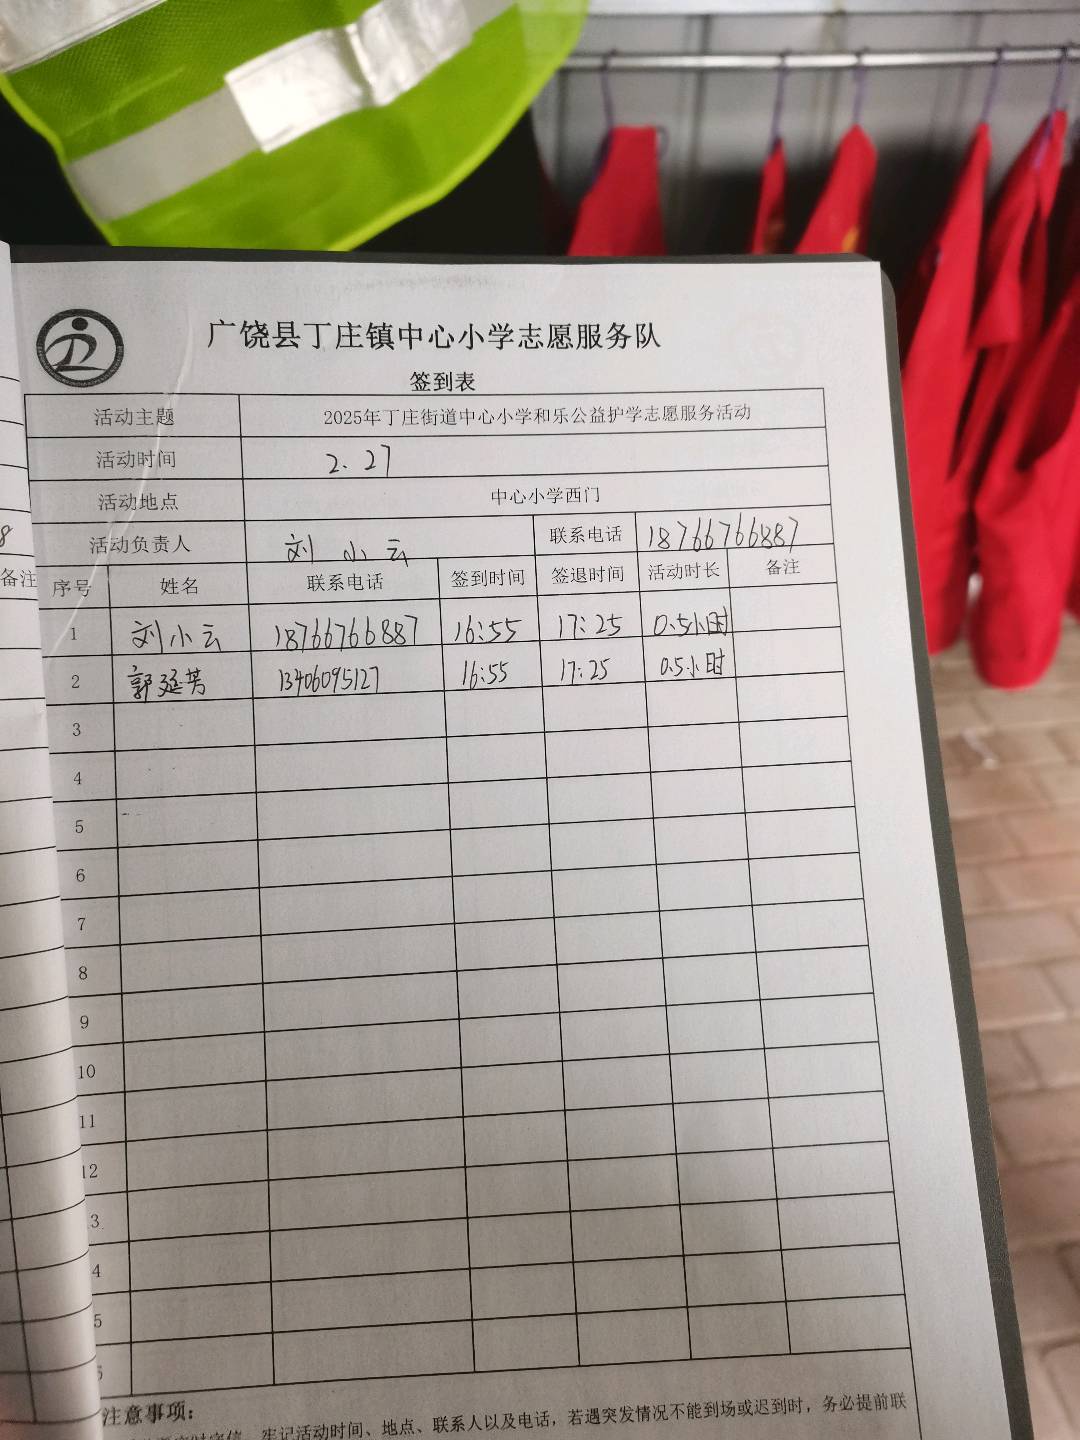 广饶县丁庄镇中心小学志愿服务队
签到表
活动主题 2025年丁庄街道中心小学和乐公益护学志愿服务活动
活动时间 2.27
活动地点 中心小学西门
活动负责人 刘小云 联系电话 18766766887
序号 姓名 联系电话 签到时间 签退时间 活动时长 备注
1 刘小云 18766766887 16:55 17:25 0.5小时
2 郭延芳 13406095127 16:55 17:25 0.5小时
3
4
5
6
7
8
9
10
11
12
3
4
5
注意事项:
牢记活动时间、地点、联系人以及电话，若遇突发情况不能到场或迟到时，务必提前联
8
备注